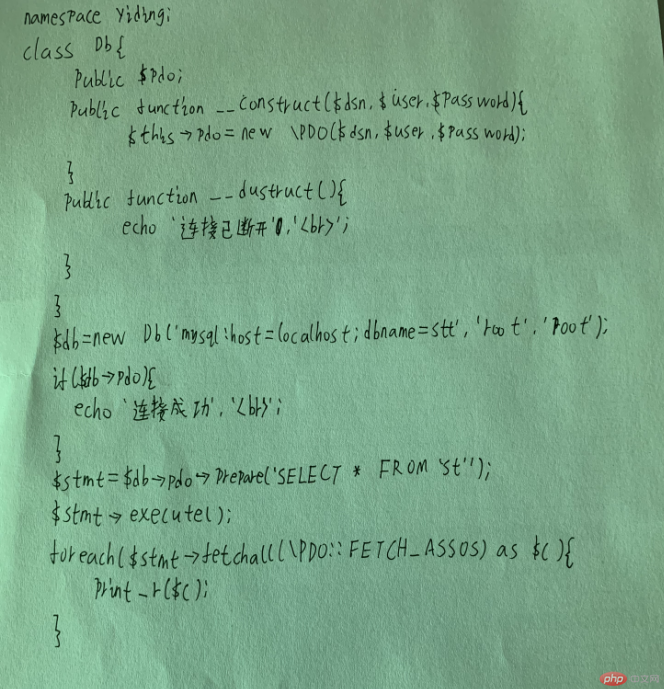 namespace yiding;
class Db{
Public $pdo;
Public function __construct($dsn,$user,$password){
$this->pdo=new \PDO($dsn,$user,$password);
}
Public function __dustruct(){
echo '连接已断开','<br>';
}
}
$db=new Db('mysql:host=localhost;dbname=stt','root','root');
if($db->pdo){
echo '连接成功','<br>';
}
$stmt=$db->pdo->prepare('SELECT * FROM `st`');
$stmt->execute();
foreach($stmt->fetchall(\PDO::FETCH_ASSOS) as $c){
Print_r($c);
}
php 中文网